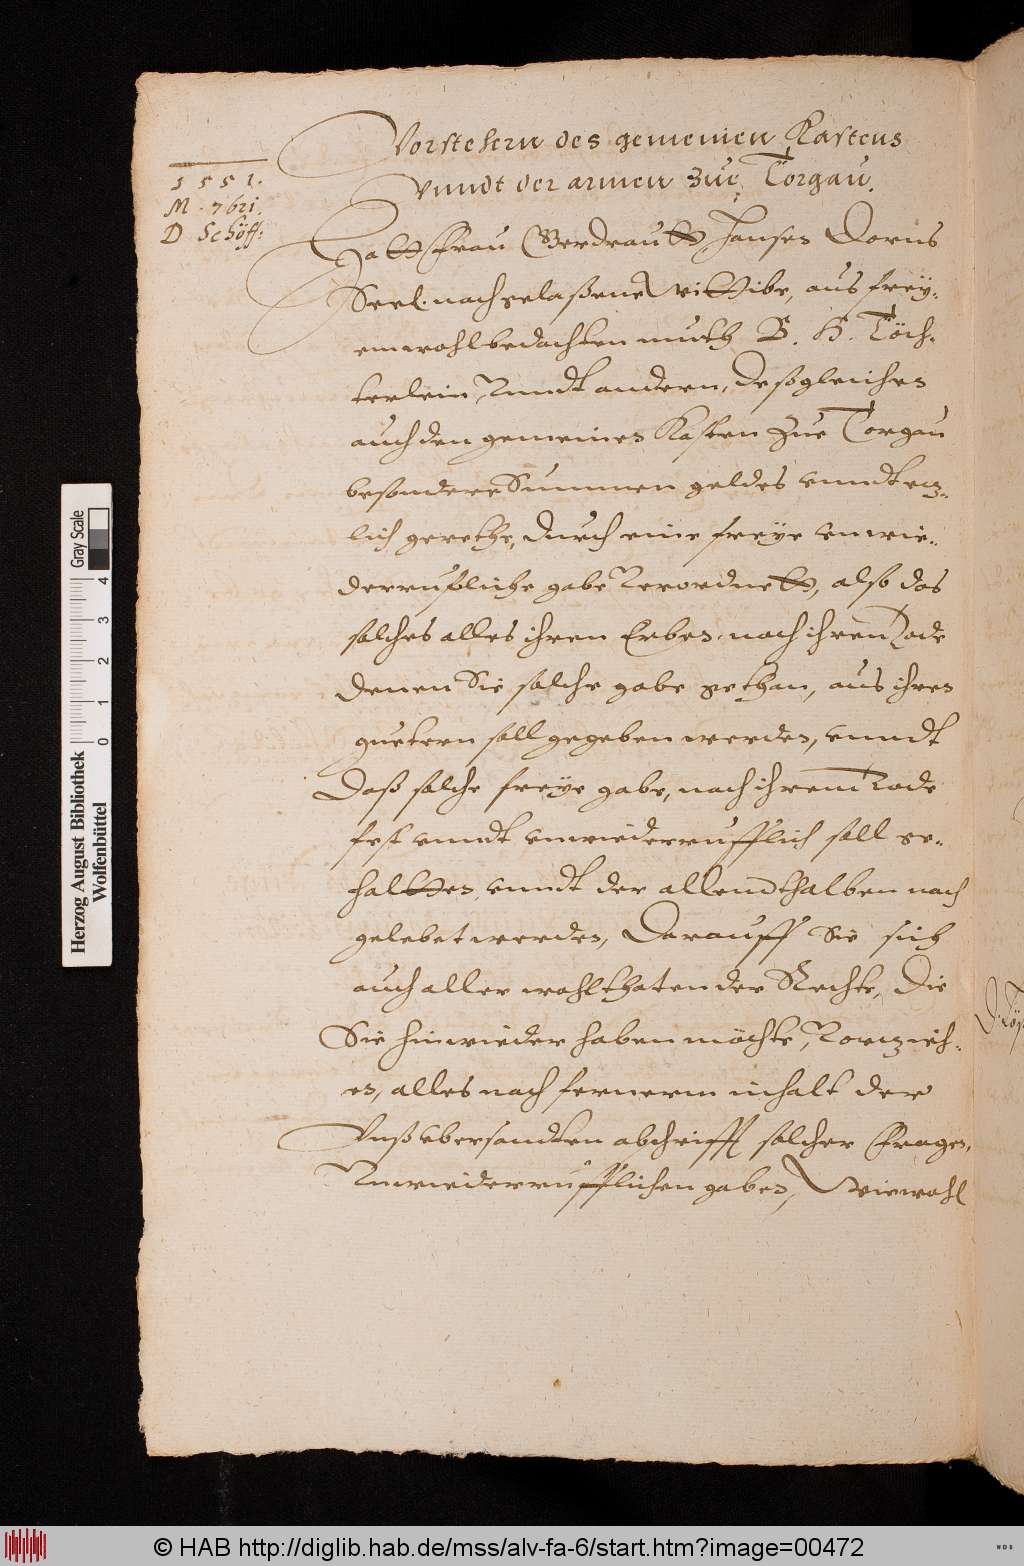 Vorstehern des gemeinen Kastens
vnndt der armen zue Torgau.
1551.
M. 7bri.
D Schöff:
Hatt Frau Gerdrautt Hansen Dorns
Seel. nachgelaßene Wittibe, aus frey-
em wohlbedachten muth B. H. Töch-
terlein, Vnndt andern, Deßgleichen
auch den gemeinen Kasten zue Torgau
besondere Summen geldes vnndt etz-
lich gerethe, durch eine freye vnwie-
derrufliche gabe Verordnett, also das
solches alles ihren Erben nach ihren Tode
denen Sie solche gabe gethan, aus ihren
guetern soll gegeben werden, vnndt
Daß solche freye gabe, nach ihrem Tode
fest vnndt vnwiederrufflich soll ge-
haltten, vnndt der allendthalben nach
gelebet werden, Darauff Sie sich
auch aller wohlthaten der Rechte, Die
Sie hinwieder haben möchte, Vorzieh-
en, alles nach fernerm inhalt der
Vnß vbersandten abschrifft solcher Fragen,
Vnwiederrufflichen gaben, Wiewohl
Herzog August Bibliothek
Wolfenbüttel
0 1 2 3 4
Gray Scale
© HAB http://diglib.hab.de/mss/alv-fa-6/start.htm?image=00472